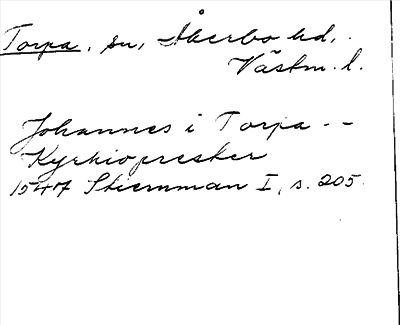 Torpa, sn, Åkerbo hd,
Västm. l.
Johannes i Torpa - -
Kyrkioprester
1547 Stiernman I, s. 205.